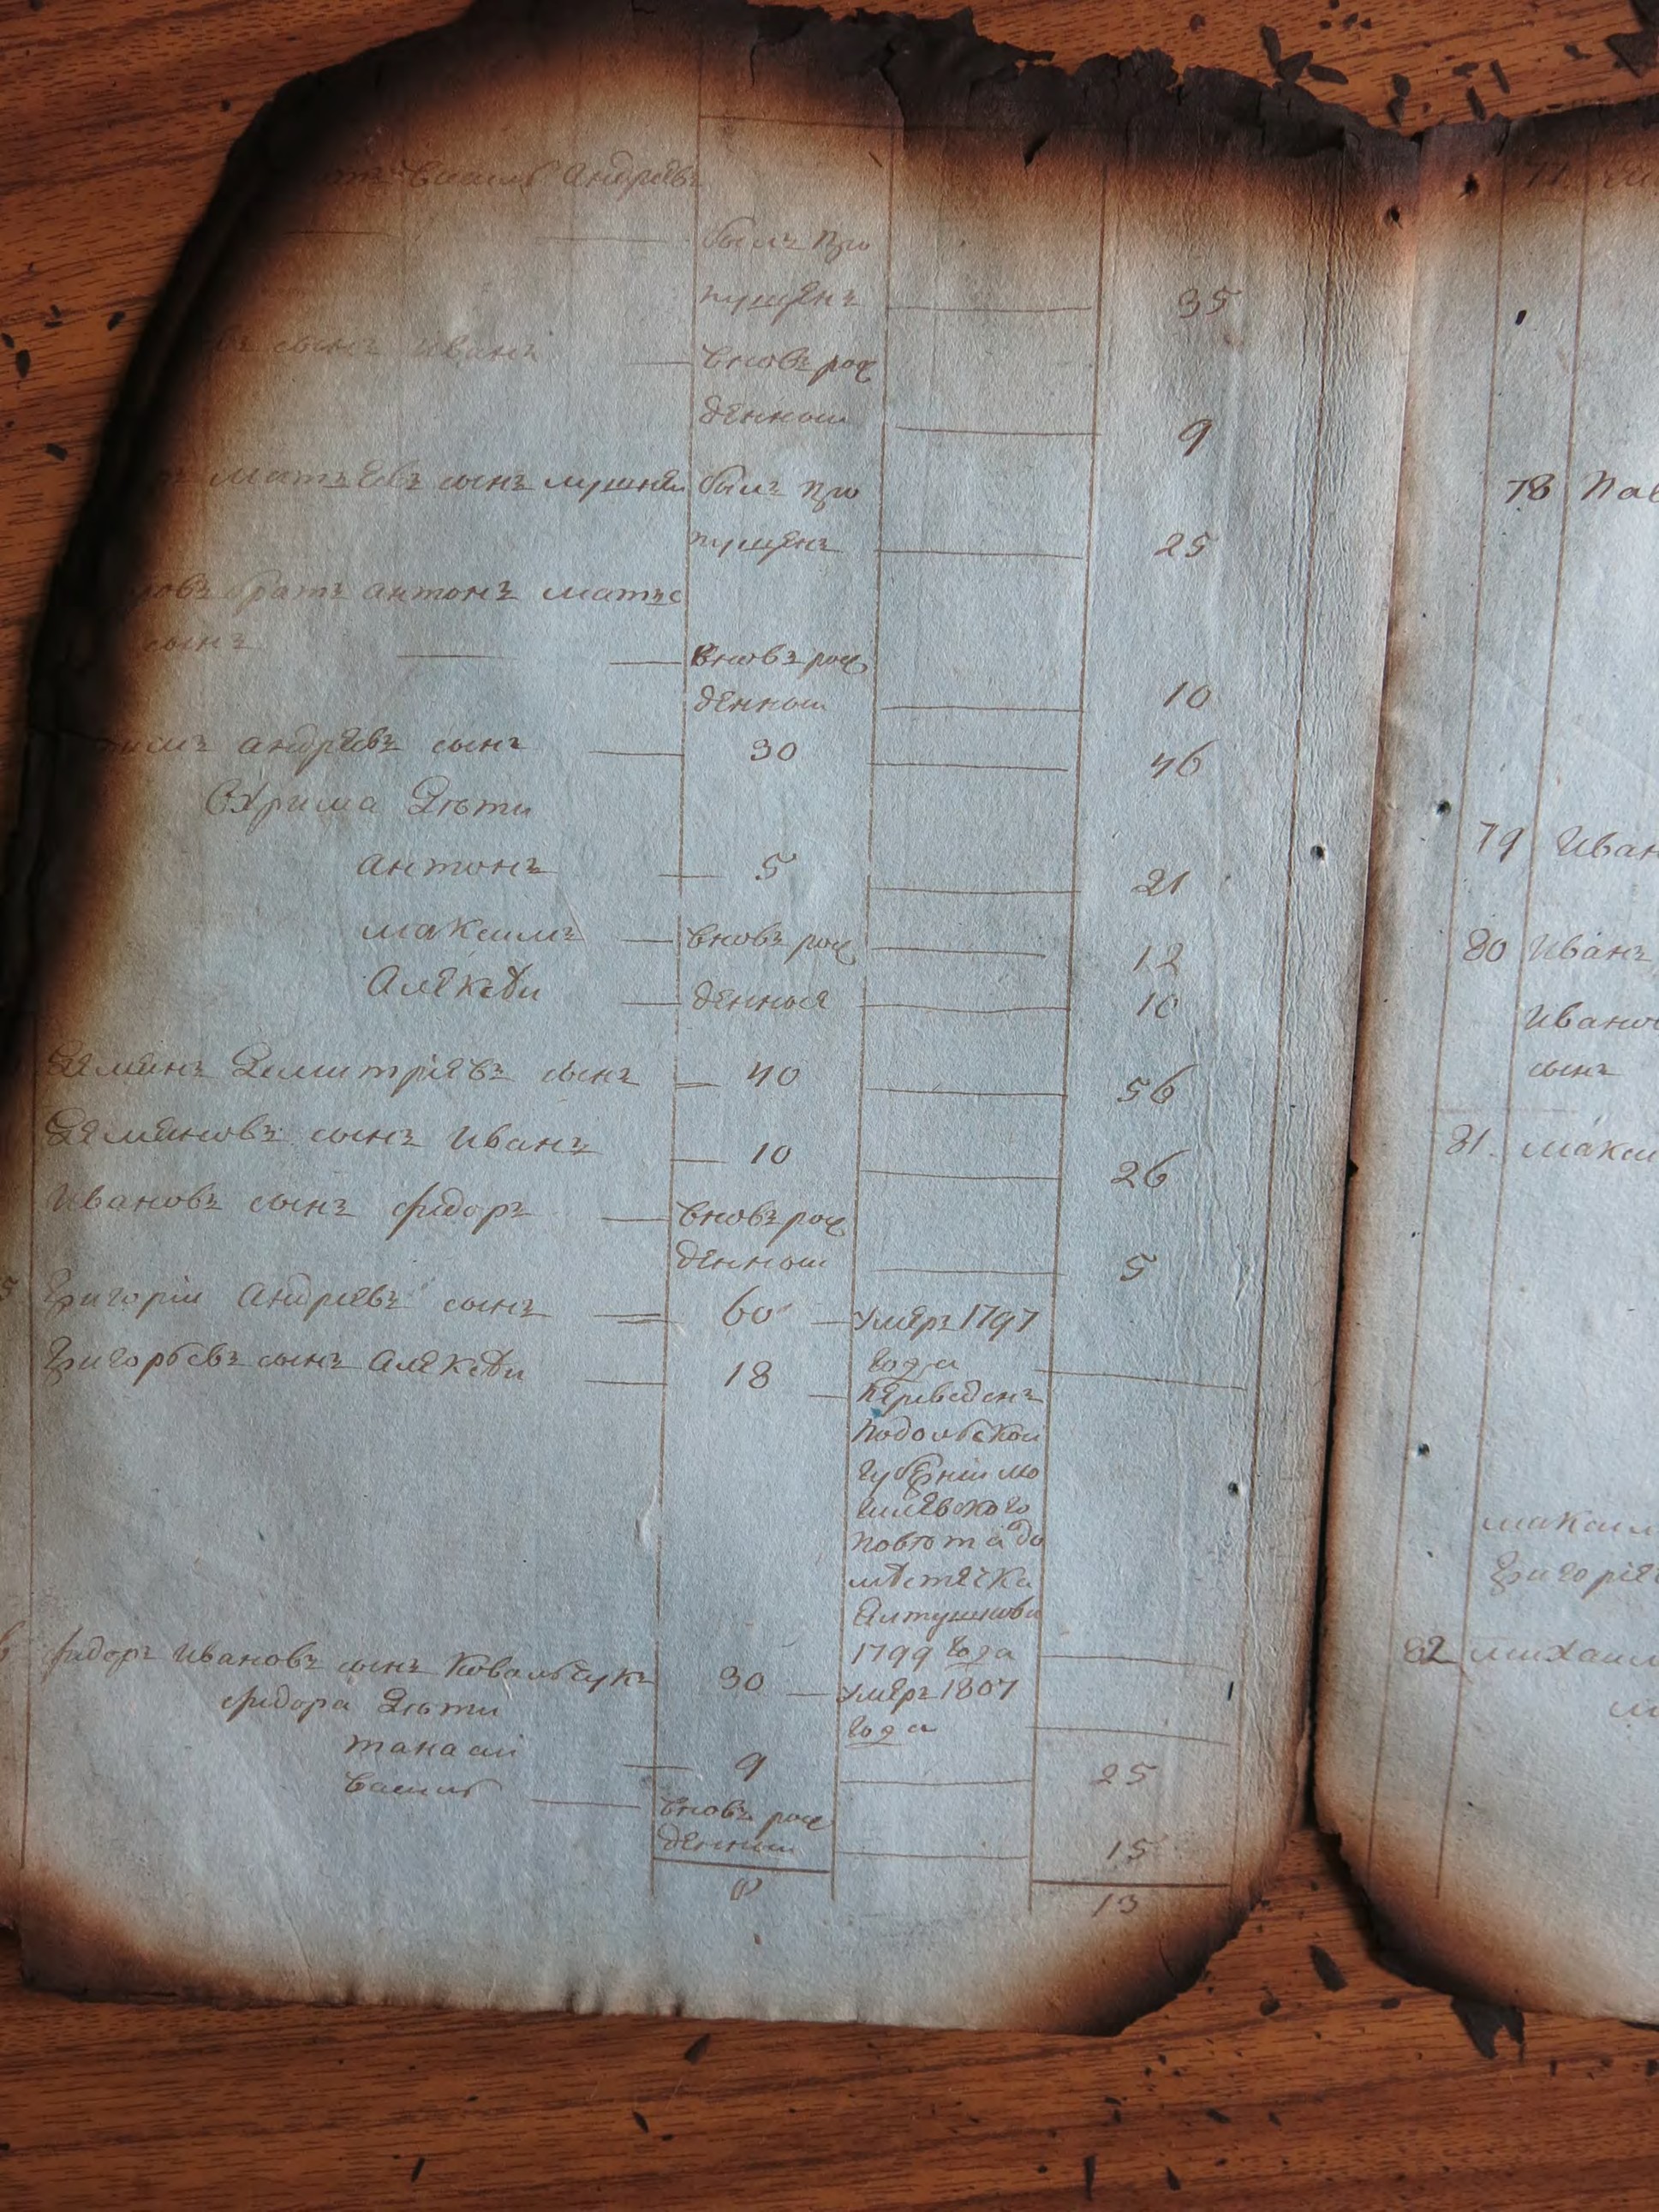 Василь Андреевъ
былъ про
пущенъ 35
сынъ Иванъ вновъ рож
денной 9
Матвеевъ сынъ былъ про
пущенъ 25
братъ антонъ матве
сынъ вновъ рож
денной 10
андреевъ сынъ 30 46
Охрима дѣти
антонъ 5 21
максимъ вновъ рож 12
Алексѣй денные 10
Демянъ Демитріевъ сынъ 40 56
Демяновъ сынъ Иванъ 10 26
Ивановъ сынъ Федоръ вновъ рож
денной 5
Григоріи Андреевъ сынъ 60 умеръ 1797
года
Григорьевъ сынъ Алексѣй 18 переведенъ
Подольской
губерніи мо
гилевского
повѣта до
мѣстечка
Ялтушкова
1799 года
Федоръ Ивановъ сынъ Ковальчукъ 30 умеръ 1807
года
Федора дѣти
танасій 9 25
василь вновъ рож
денный 15
8 13
77
78 Пав
79 Иван
80 Иванъ
Иванов
сынъ
81 макси
максим
Григоріев
82 михаил